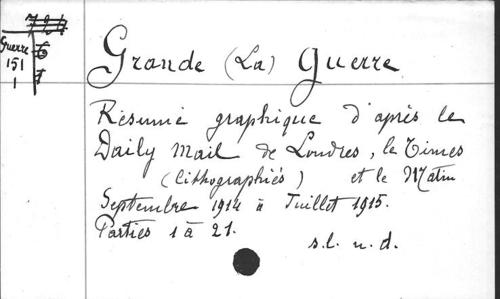 Guerre
151
1
Grande (La) Guerre
Résumé graphique d'après le
Daily Mail de Londres, le Times
(lithographiés) et le Matin
Septembre 1914 à Juillet 1915.
Parties 1 à 21.
s.l. n.d.